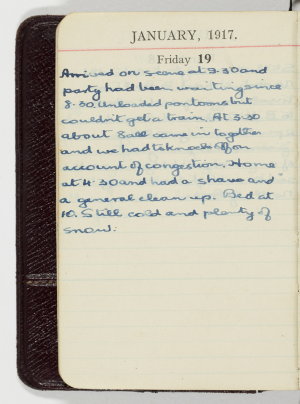 JANUARY, 1917.
Friday 19
Arrived on scene at 9.30 and
party had been waiting since
8.30. Unloaded pontoons but
couldn't get a train. At 3.30
about 8 all came in together
and we had to knock off on
account of congestion. Home
at 4.30 and had a shave and
a general clean up. Bed at
10. Still cold and plenty of
snow.